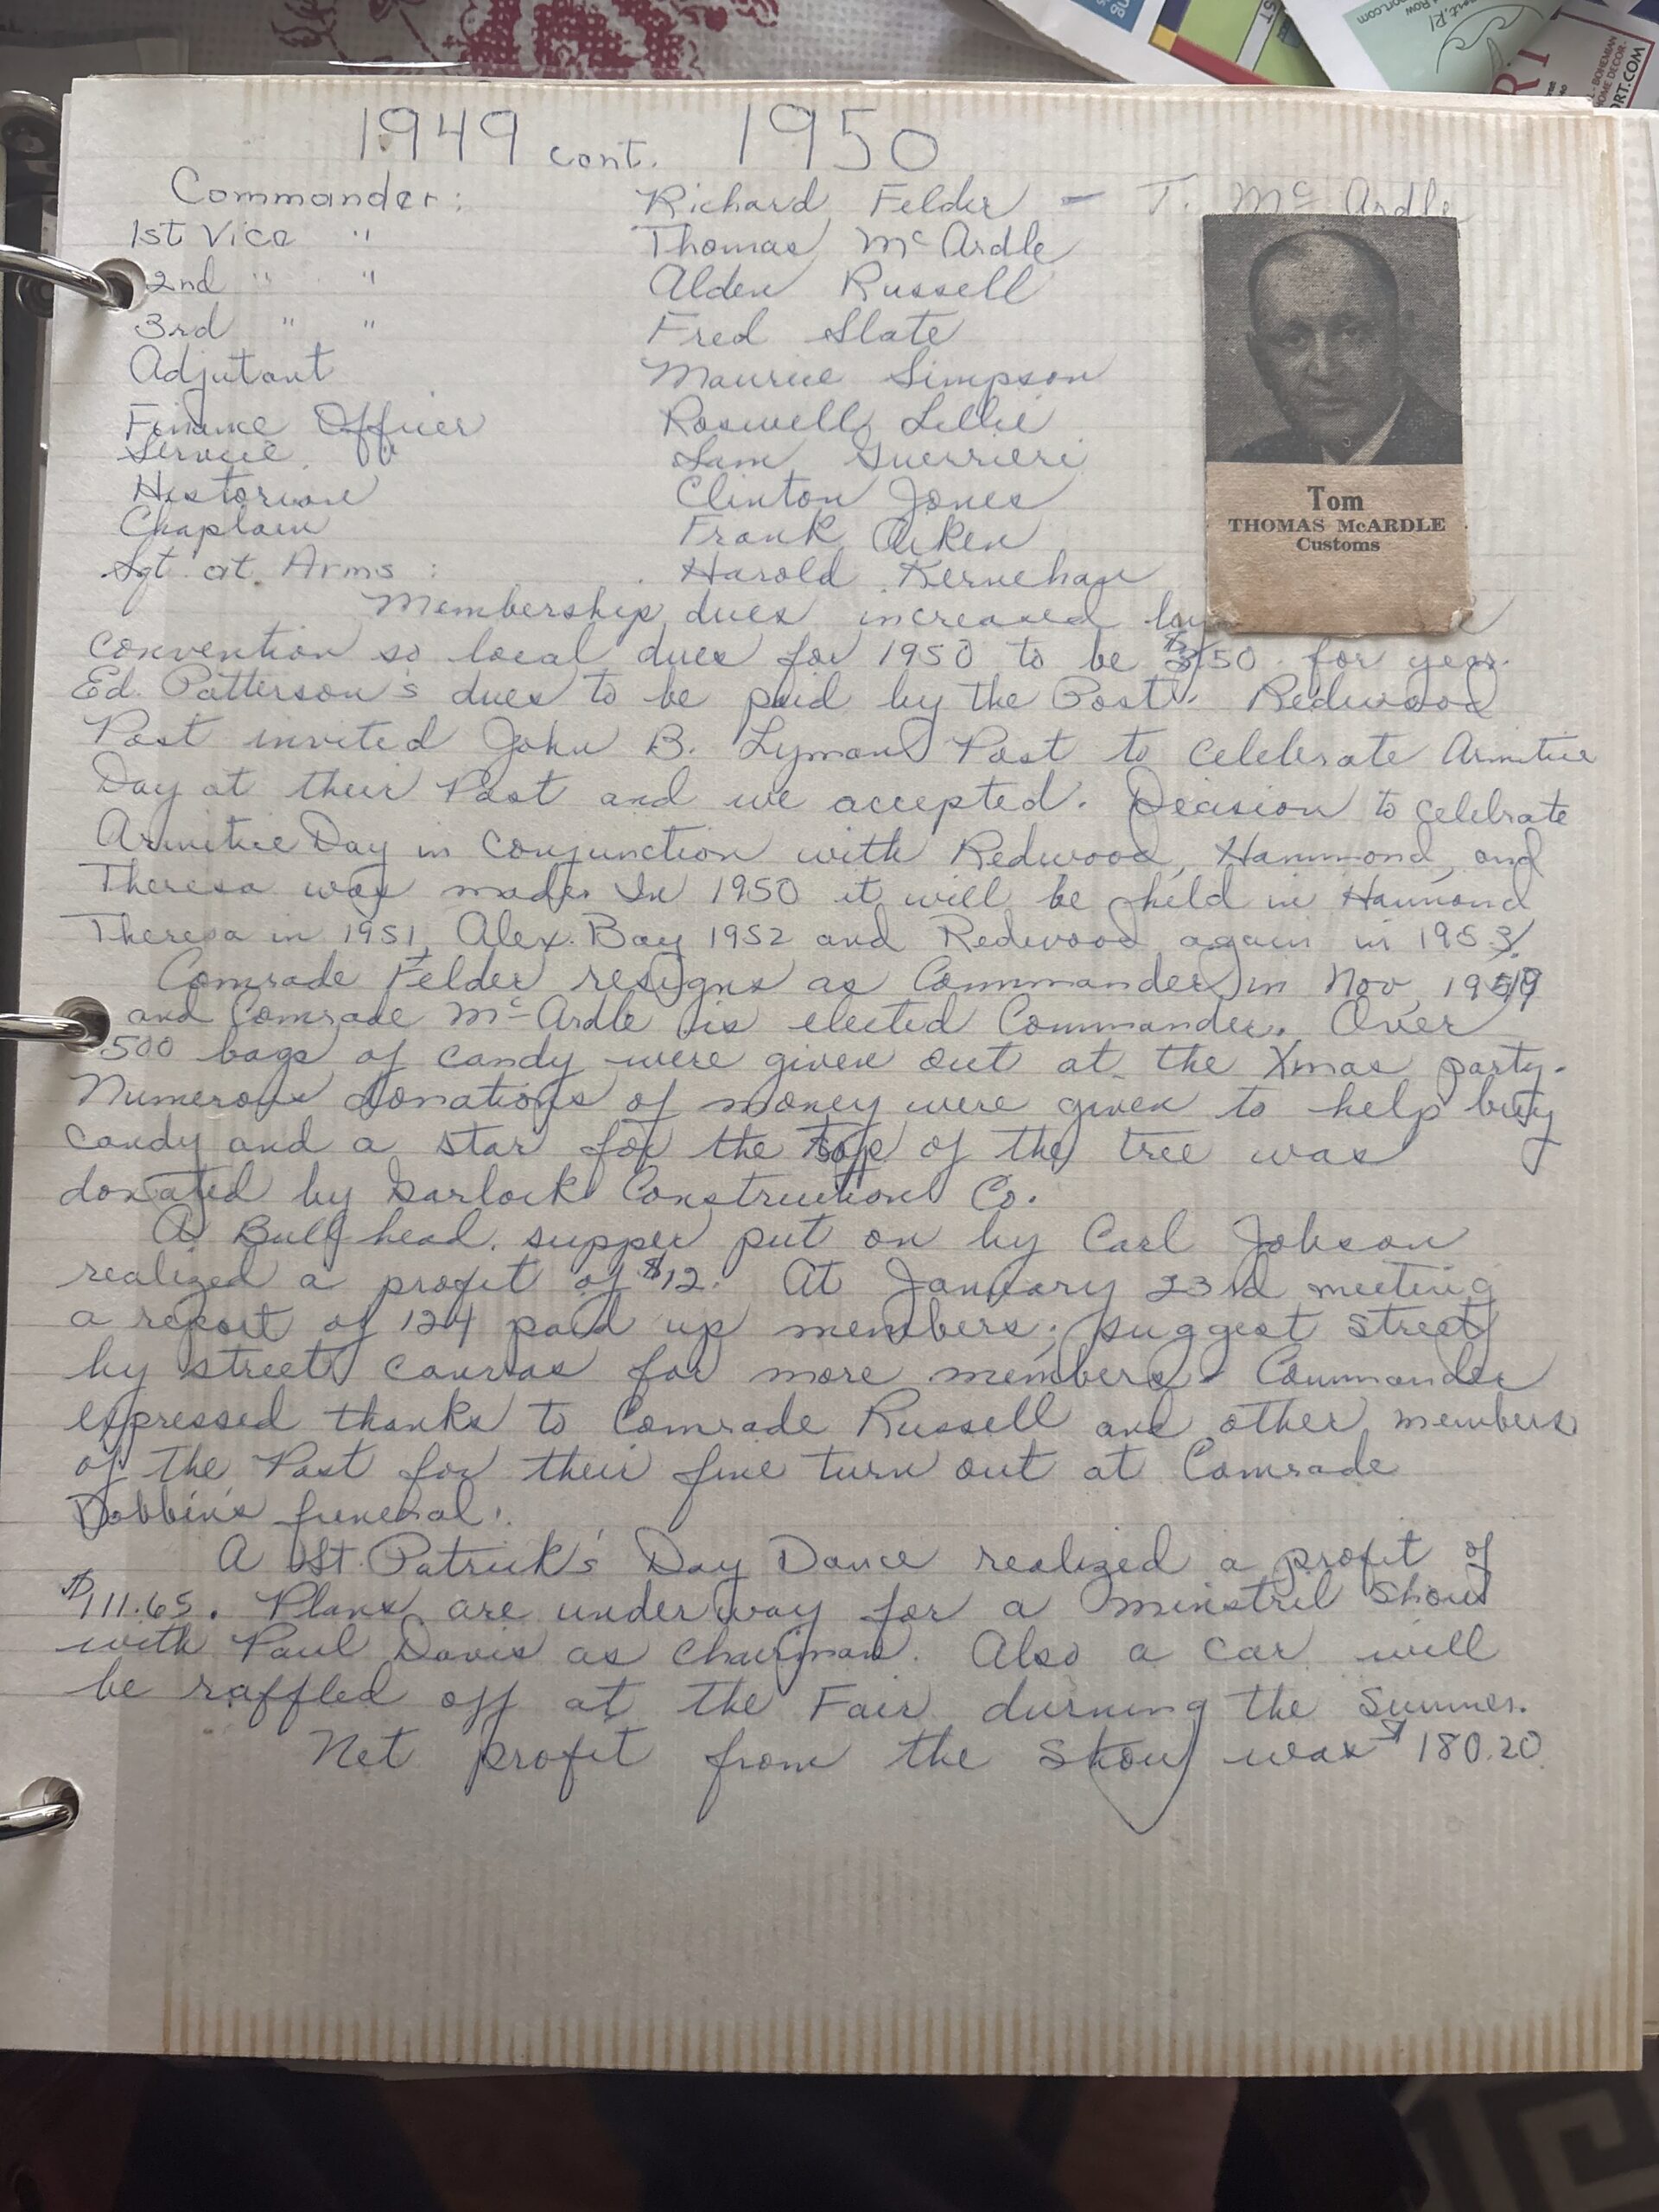 1949 cont. 1950
Commander: Richard Felder - T. McArdle
1st Vice " Thomas McArdle
2nd " " Alden Russell
3rd " " Fred Slate
Adjutant Maurice Simpson
Finance Officer Roswell Lillie
Service Off Sam Guerrieri
Historian Clinton Jones
Chaplain Frank Aiken
Sgt. at. Arms: Harold Kernehan
Tom
THOMAS McARDLE
Customs
Membership dues increased
convention so local dues for 1950 to be $3.50 for year.
Ed. Patterson's dues to be paid by the Post. Redwood
Post invited John B. Lyman Post to celebrate Armitice
Day at their Post and we accepted. Decision to celebrate
Armitice Day in conjunction with Redwood, Hammond, and
Theresa was made. In 1950 it will be held in Hammond
Theresa in 1951, Alex. Bay 1952 and Redwood again in 1953.
Comrade Felder resigns as Commander in Nov, 1949
and Comrade McArdle is elected Commander. Over
500 bags of candy were given out at the Xmas party.
Numerous donations of money were given to help buy
candy and a star for the top of the tree was
donated by Garlock Construction Co.
A Bull head supper put on by Carl Jobson
realized a profit of $12. At January 23rd meeting
a report of 124 paid up members; suggest street
by street canvas for more members. Commander
expressed thanks to Comrade Russell and other members
of the Post for their fine turn out at Comrade
Dobbins funeral.
A St. Patrick's Day Dance realized a profit of
$111.65. Plans are underway for a minstril show
with Paul Davis as chairman. Also a car will
be raffled off at the Fair durning the summer.
Net profit from the show was $180.20